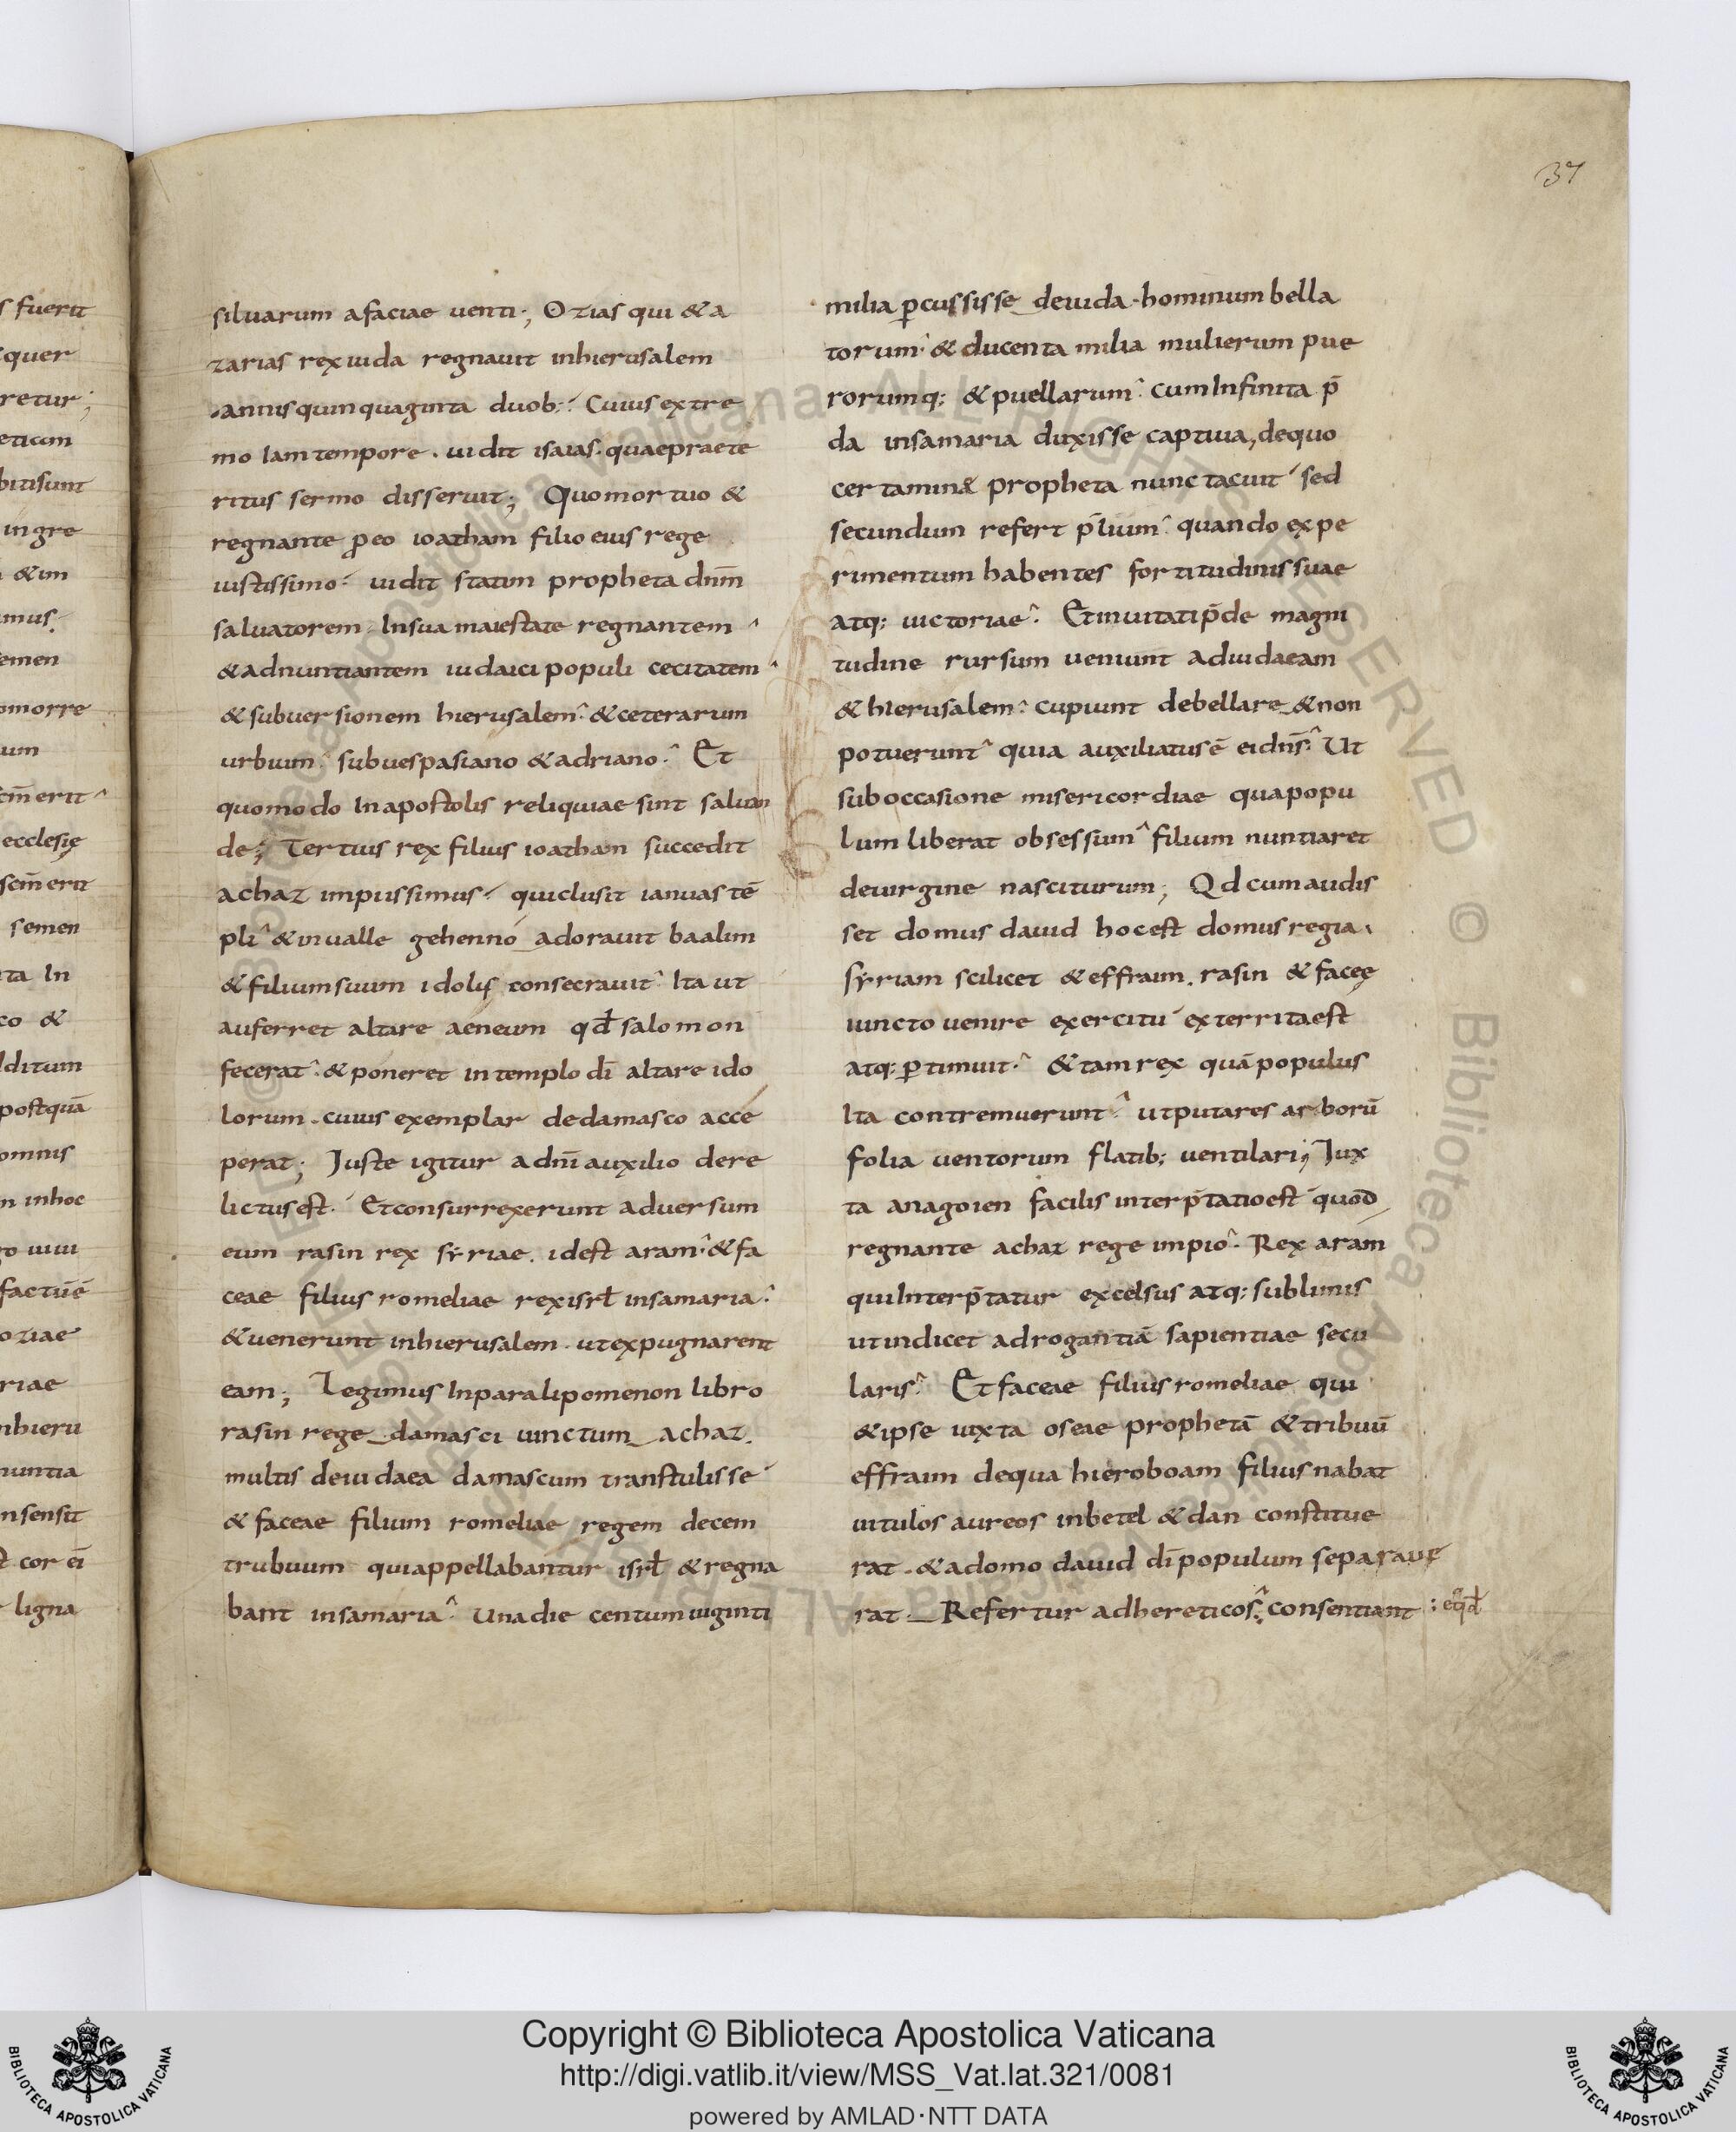 37
s fuerit
squer
retur;
eticam
bitisunt
ingre
& im
imus.
semen
omorre
um
scm̄erit
ecclesię
scm̄erit
semen
ta In
co &
dditum
postquā
omnis
n inhoc
ro uiui
factūē
oziae
riae
nhieru
nuntia
nsensit
cor ei
ligna
siluarum afaciae uenti; Ozias qui & a
zarias rex iuda regnauit inhierusalem
annisquinquaginta duob; Cuius extre
mo Iam tempore. uidit isaias. quaepraete
ritus sermo disseruit; Quomortuo &
regnante p eo ioatham filio eius rege
iustissimo uidit statim propheta dnm̄
saluatorem. Insua maiestate regnantem
& adnuntiantem iudaici populi cecitatem
& subuersionem hierusalem. & ceterarum
urbium subuespasiano & adriano. Et
quomodo Inapostolis reliquiae sint saluan
de; Tertius rex filius ioatham succedit
achaz impiissimus quiclusit ianuas tē
pli & inualle gehenno adorauit baalim
& filiumsuum idolis consecrauit Ita ut
auferret altare aeneum qđ salomon
fecerat. & poneret in templo dī altare ido
lorum. cuius exemplar dedamasco acce
perat; Juste igitur adnī auxilio dere
lictusest. Etconsurrexerunt aduersum
eum rasin rex syriae. idest aram. & fa
ceae filius romeliae rexisrł insamaria.
& uenerunt inhierusalem. utexpugnarent
eam; Legimus Inparalipomenon libro
rasin rege damasci uinctum achaz.
multis deiudaea damascum transtulisse
& faceae filium romeliae regem decem
trubuum quiappellabantur isrł & regna
bant insamaria. Unadie centumuiginti
milia pcussisse deiuda. hominum bella
torum & ducenta milia mulierum pue
rorumq; & puellarum. cumInfinita p̄
da insamaria duxisse captiua, dequo
certamin& propheta nunc tacuit sed
secundum refert p̄lium. quando expe
rimentum habentes fortitudinis suae
atq; uictoriae. Etinuitatip̄de magni
tudine rursum ueniunt adiudaeam
& hierusalem. cupiunt debellare & non
potuerunt quia auxiliatusē eidn̄s. Ut
suboccasione misericordiae quapopu
lum liberat obsessum filium nuntiaret
deuirgine nasciturum; Qd cumaudis
set domus dauid hocest domus regia.
syriam scilicet & effraim. rasin & facee
iuncto uenire exercitu exterritaest
atq; ptimuit. & tam rex quā populus
Ita contremuerunt utputares arborū
folia uentorum flatib; uentilari; Jux
ta anagoien facilis interp̄tatioest quod
regnante achaz rege impio. Rex aram
quiInterp̄tatur excelsus atq; sublimis
utindicet adrogantiā sapientiae secu
laris. Et faceae filius romeliae qui
& ipse iuxta oseae prophetā & tribuū
effraim dequa hieroboam filius nabat
uitulos aureos inbetel & dan constitue
rat. & adomo dauid dī populum separaue
rat. Refertur adhereticos. consentiant
Copyright © Biblioteca Apostolica Vaticana
http://digi.vatlib.it/view/MSS_Vat.lat.321/0081
powered by AMLAD·NTT DATA
BIBLIOTECA APOSTOLICA VATICANA
BIBLIOTECA APOSTOLICA VATICANA